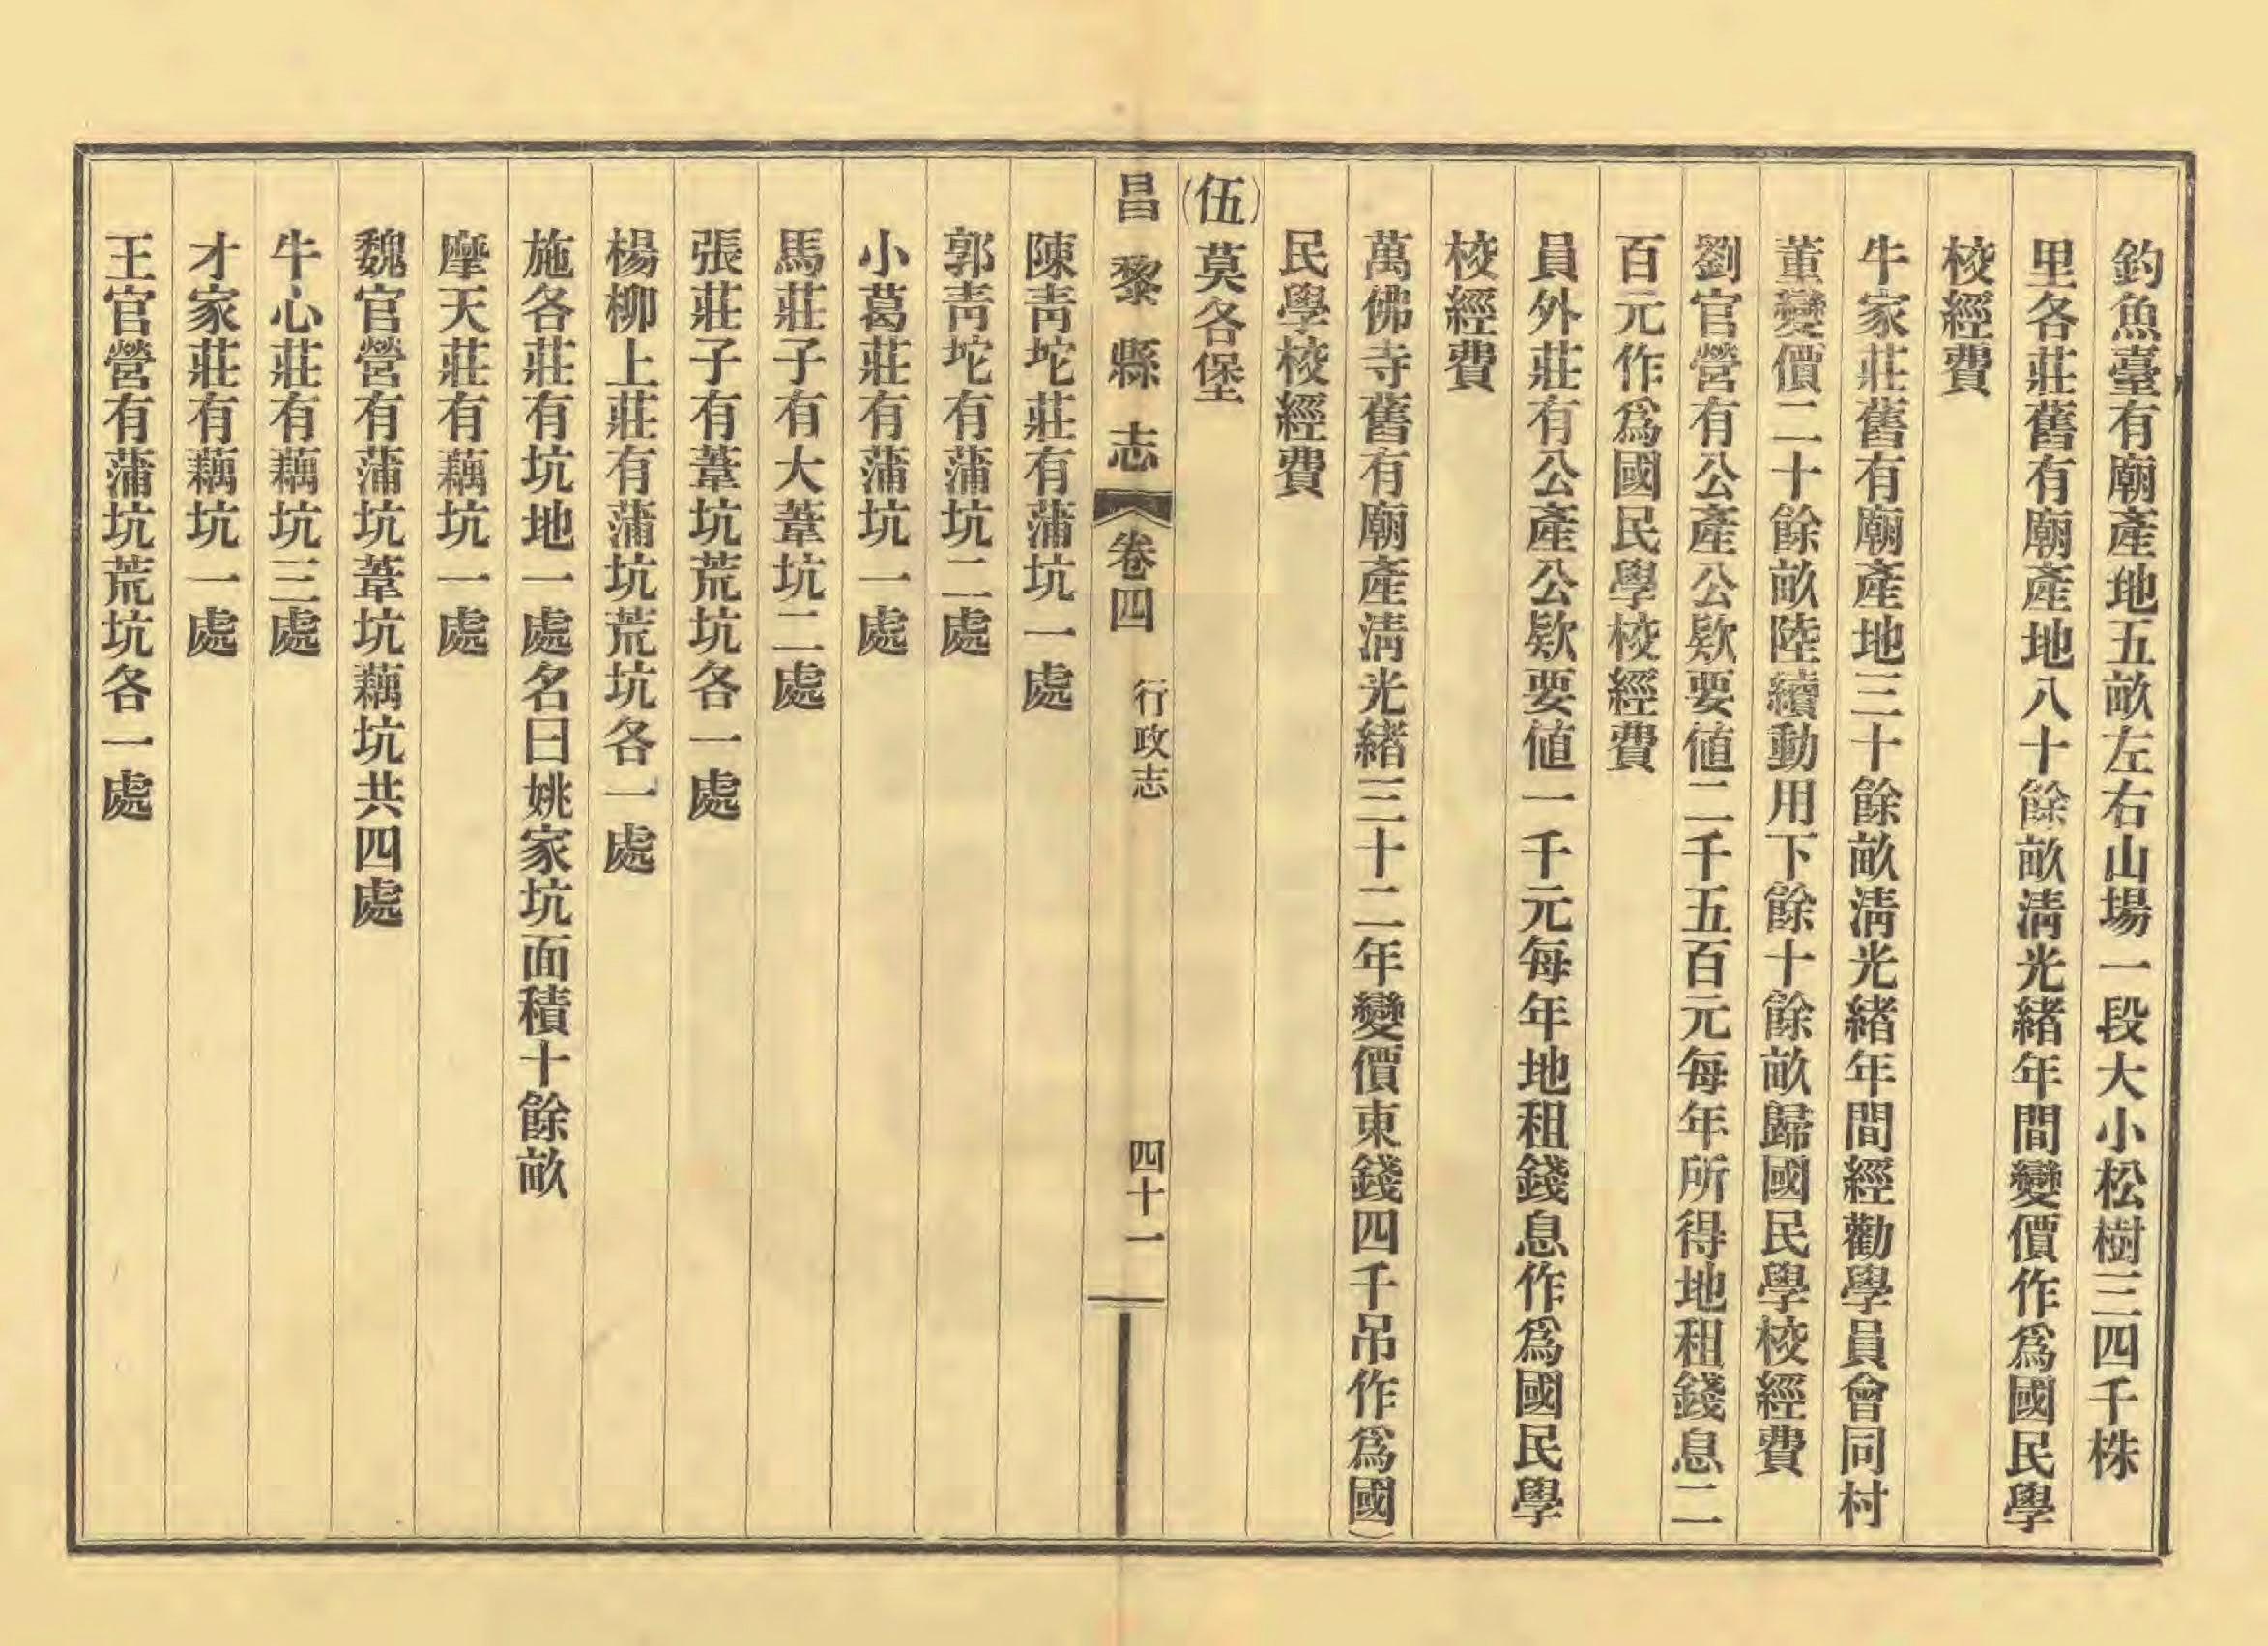 釣魚臺有廟產地五畝左右山場一段大小松樹三四千株
里各莊舊有廟產地八十餘畝淸光緒年間變價作爲國民學
校經費
牛家莊舊有廟產地三十餘畝淸光緒年間經勸學員會同村
董變價二十餘畝陸續動用下餘十餘畝歸國民學校經費
劉官營有公產公欵要値二千五百元每年所得地租錢息二
百元作爲國民學校經費
員外莊有公產公欵要値一千元每年地租錢息作爲國民學
校經費
萬佛寺舊有廟產淸光緒三十二年變價東錢四千吊作爲國)
民學校經費
(伍)莫各堡
昌黎縣志 卷四 行政志 四十一
陳靑坨莊有蒲坑一處
郭靑坨有蒲坑二處
小葛莊有蒲坑一處
馬莊子有大葦坑二處
張莊子有葦坑荒坑各一處
楊柳上莊有蒲坑荒坑各一處
施各莊有坑地一處名曰姚家坑面積十餘畝
摩天莊有藕坑一處
魏官營有蒲坑葦坑藕坑共四處
牛心莊有藕坑三處
才家莊有藕坑一處
王官營有蒲坑荒坑各一處